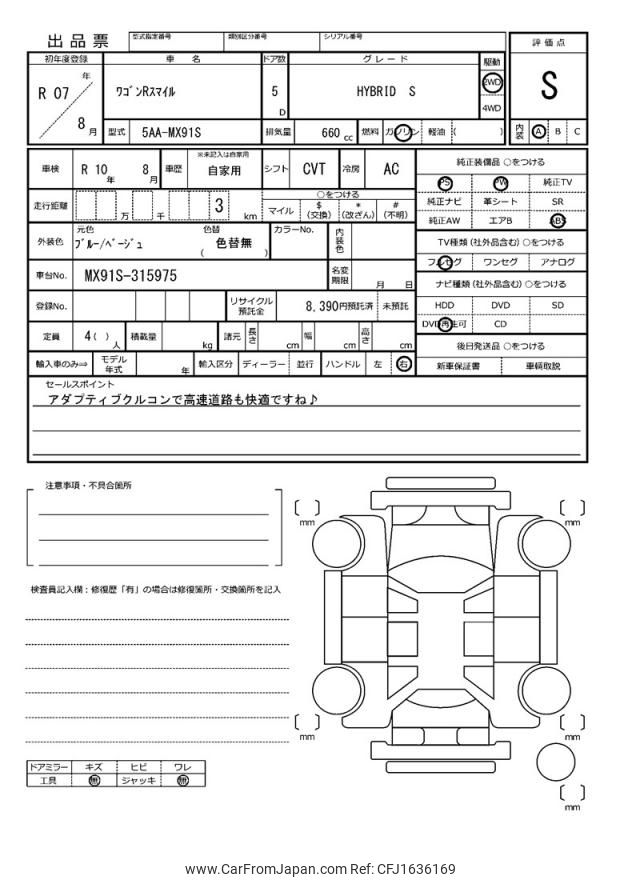 出品票
型式指定番号 類別区分番号 シリアル番号
評価点
S
内装 A B C
初年度登録 車 名 ドア数 グレード 駆動
R 07 年 8 月
ワゴンRスマイル
5 D
HYBRID S
2WD
4WD
型式 5AA-MX91S 排気量 660 cc 燃料 ガソリン 軽油 ( )
車検 R 10 年 8 月 車歴 ※未記入は自家用 自家用 シフト CVT 冷房 AC
走行距離 万 千 3 km
○をつける
マイル $(交換) *(改ざん) #(不明)
外装色 元色 ブルー/ベージュ 色替 色替無 ( ) カラーNo. 内装色
車台No. MX91S-315975 名変期限 月 日
登録No. リサイクル預託金 8,390円預託済 未預託
定員 4 ( ) 人 積載量 kg 諸元 長さ cm 幅 cm 高さ cm
輸入車のみ⇒ モデル年式 年 輸入区分 ディーラー 並行 ハンドル 左 右
純正装備品 ○をつける
PS PW 純正TV
純正ナビ 革シート SR
純正AW エアB ABS
TV種類 (社外品含む) ○をつける
フルセグ ワンセグ アナログ
ナビ種類 (社外品含む) ○をつける
HDD DVD SD
DVD再生可 CD
後日発送品 ○をつける
新車保証書 車輌取説
セールスポイント
アダプティブクルコンで高速道路も快適ですね♪
注意事項・不具合箇所
検査員記入欄：修復歴「有」の場合は修復箇所・交換箇所を記入
ドアミラー キズ ヒビ ワレ
工具 無 ジャッキ 無
mm
mm
mm
mm
mm
www.CarFromJapan.com Ref: CFJ1636169